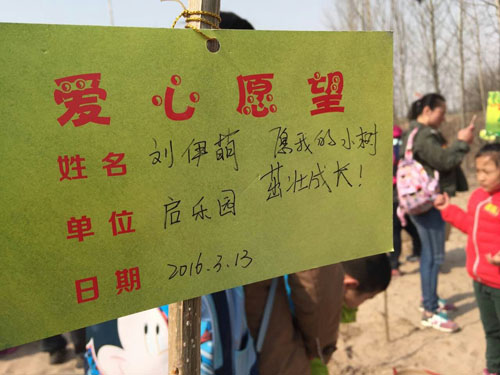 爱心愿望
姓名 刘伊萌 愿我的小树
茁壮成长!
单位 启乐园
日期 2016.3.13